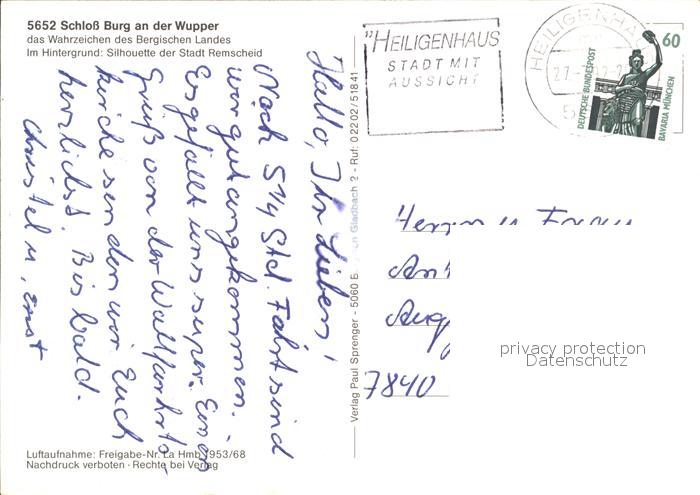 5652 Schloß Burg an der Wupper
das Wahrzeichen des Bergischen Landes
Im Hintergrund: Silhouette der Stadt Remscheid
Hallo, Ihr Lieben!
Nach 5 1/4 Std. Fahrt sind
wir gut angekommen.
Es gefällt uns super. Einen
Gruß von der Wallfahrts-
kirche senden wir Euch
herzlichst. Bis bald.
Christel u. Ernst
Luftaufnahme: Freigabe-Nr. La Hmb 1953/68
Nachdruck verboten · Rechte bei Verlag
Verlag Paul Sprenger - 5060 Gladbach 2 - Ruf: 02202/51841
"HEILIGENHAUS
STADT MIT
AUSSICHT
HEILIGENHA
60
DEUTSCHE BUNDESPOST
BAVARIA MÜNCHEN
Herrn u.
7840
privacy protection
Datenschutz